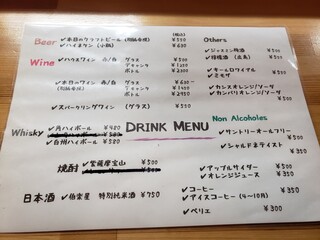 (税込)
Beer
✓本日のクラフトビール(問合せ)　¥550
✓ハイネケン(小瓶)　¥630
Wine
✓ハウスワイン 赤/白 グラス　¥500
デキャンタ
ボトル　¥2300
✓本日のワイン 赤/白 グラス
デキャンタ
ボトル
✓スパークリングワイン (グラス)　¥550
Whisky
✓角ハイボール　¥480
✓白州ハイボール　¥580
焼酎
✓紫薩摩宝山　¥500
日本酒
✓伯楽星 特別純米酒　¥750
DRINK MENU
Others
✓ジャスミン梅酒　¥500
✓キールロワイヤル
✓ミモザ　¥650
✓カシスオレンジ/ソーダ
✓カンパリオレンジ/ソーダ　¥500
Non Alcoholes
✓サントリーオールフリー　¥500
✓シャルドネテイスト　¥350
✓アップルサイダー　¥500
✓オレンジジュース　¥350
✓コーヒー　¥350
✓アイスコーヒー (4〜10月)　¥400
✓ペリエ　¥300